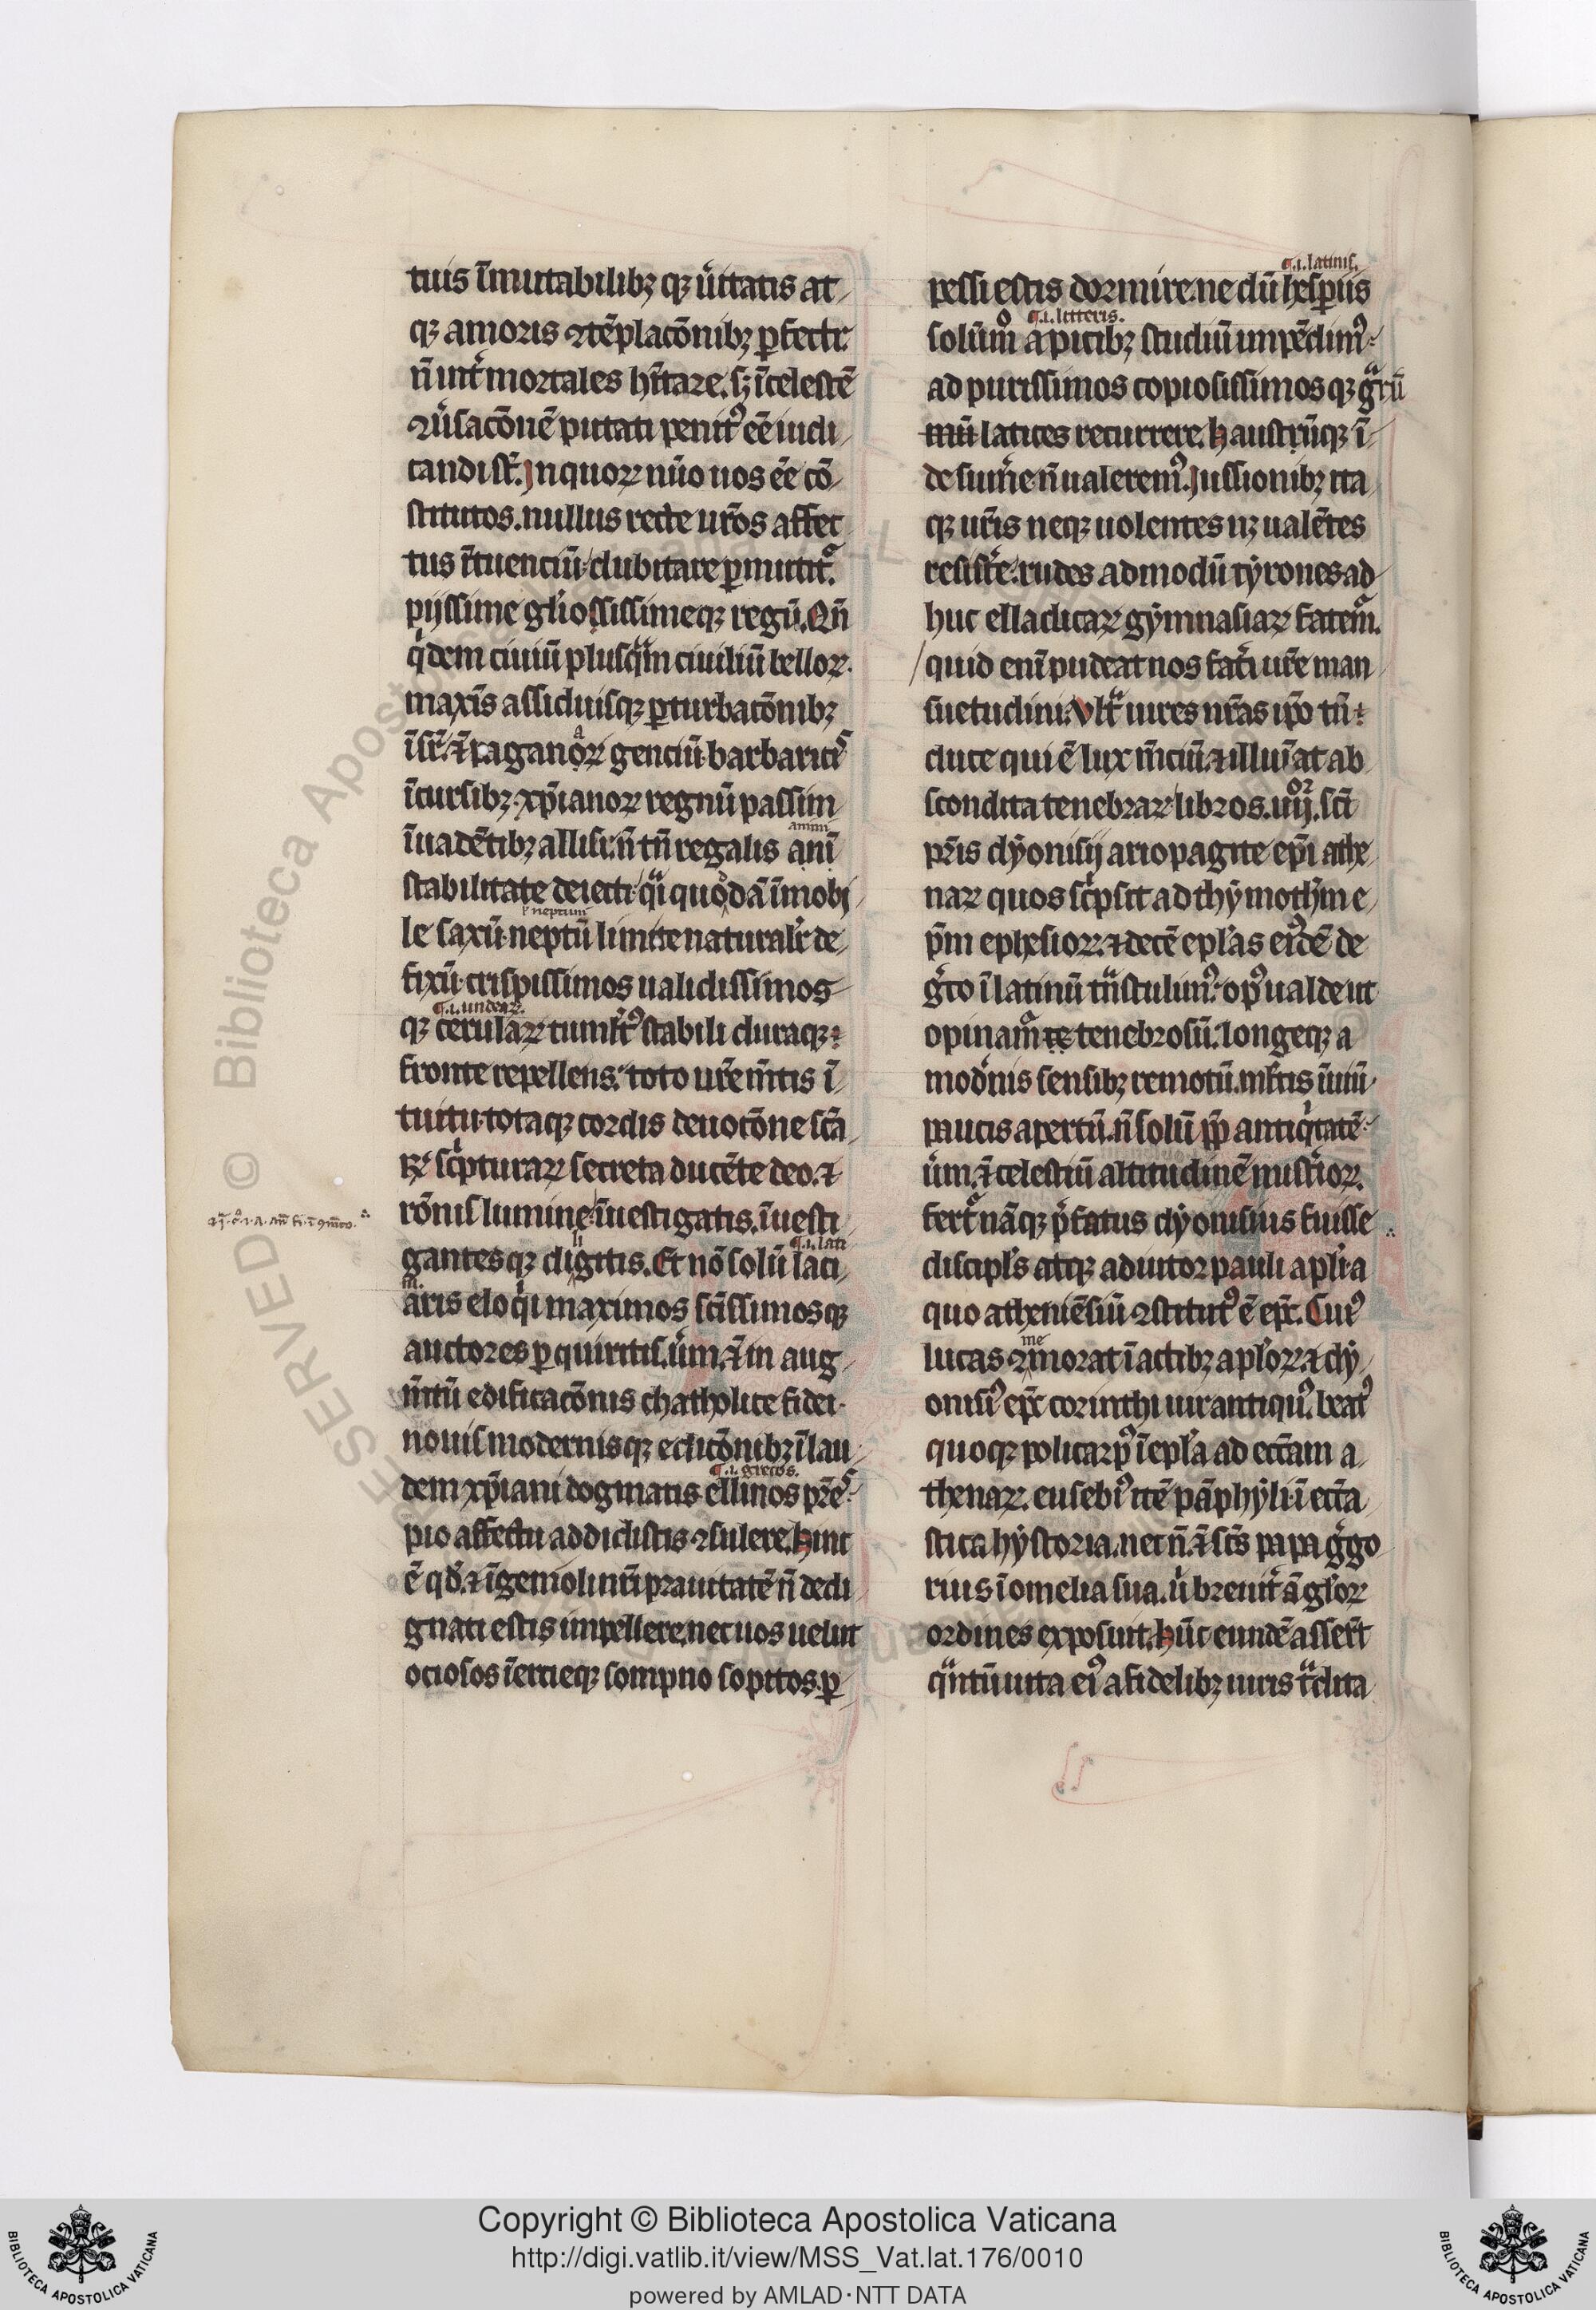 tuis īmutabilibꝫ qꝫ ũitatis at
qꝫ amoris ꝯtēplacōnibꝫ ꝑfecti.
n̄ int̃ mortales hr̃tare. sꝫ ī celestē
ꝯũsacōnē putati penitꝰ eē iudi
candi st̃. In quoꝝ nūo uos eē cō
stitutos. nullus recte ur̃os affec
tus ītuenciū dubitare ꝑmittit̃.
pijssime gl̃iosissimeqꝫ regū. Qm̄
qͥdem ciuiū plusqͣm ciuiliū belloꝝ
maxīs assiduisqꝫ ꝑturbacōnibꝫ
īsr̃. ⁊ paganoꝝ genciū barbaricis
īcursibꝫ xp̄ianoꝝ regnū passim
animi
īuadētibꝫ allisi. n̄ tn̄ regalis ani
stabilitate deiecti. qͥi quodā īmobi
neptuni
le saxū neptū limite naturalit̃ de
fixū crispissimos ualidissimos
¶.i. undaꝝ.
qꝫ cerulaꝝ tumultꝰ stabili duraqꝫ
fronte repellens. toto ur̃e m̄tis ī
tuitu totaqꝫ cordis deuotōne sc̄a
ꝝ scͥpturaꝝ secreta ducēte deo. ⁊
rōnis lumine īuestigatis. īuesti
¶.i. lati
gantesqꝫ diligitis. Et nō solū laci
aris eloqͥi maximos sc̄issimosqꝫ
auctores ꝑquiritis. ũm. ⁊ in aug
m̄tū edificacōnis chatholice fidei
nouis modernisqꝫ edicōnibꝫ ī lau
¶.i. grecos.
dem xp̄iani dogmatis ellinos pr̃es
pio affectu addidistis ꝯsulere. Hinc
ē qd̃. ⁊ īgeniolī nr̃i prauitatē n̄ dedi
gnati estis impellere. nec uos uelut
ociosos ī ertieqꝫ sompno sopitos. ꝑ
¶.i. latinis.
pessi estis dormire. ne dū hesperiis
¶.i. litteris.
solūmͦ apicibꝫ studiū impēdimꝰ
ad purissimos copiosissimosqꝫ gͣiū
latices recurrere. haustūqꝫ ī
de sum̃e n̄ ualeremꝰ. Jussionibꝫ ita
qꝫ ur̃is neqꝫ uolentes neqꝫ ualētes
resist̃e. rudes admodū tyrones ad
huc elladicaꝝ gymnasiaꝝ fatem̃.
quid enī pudeat nos fat̃i ur̃e man
suetudini. Vltͣ uires nr̃as ip̄o tn̄
duce qui ē lux m̄ciū. ⁊ illuīat ab
scondita tenebraꝝ. libros .iiij.or sc̄i
pr̃is dyonisij ariopagite ep̄i athe
naꝝ quos scͥpsit ad thymotheum e
p̄m ephesioꝝ. ⁊ decē ep̄las eiꝰdē de
gͤco ī latinū tͣnstulimꝰ. opꝰ ualde ut
opinam̃ tenebrosū. longeqꝫ a
modͤnis sensibꝫ remotū. ml̃tis īuiū
paucis apertū. n̄ solū ꝓp̄ antiqͥtatē
ũm. ⁊ celestiū altitudinē mist̃ioꝝ.
fert̃ nāqꝫ pͤfatus dyonisius fuisse
discipl̃s atqꝫ adiutor pauli apl̃i. a
quo atheniēsiū ꝯstitutꝰ ē ep̄c. Cuiꝰ
me
lucas ꝯmorat ī actibꝫ apl̃oꝝ. ⁊ dy
onisiꝰ ep̄c corinthi uir antiquꝰ. beatꝰ
quoqꝫ policarpꝰ ī ep̄la ad ecc̄am a
thenaꝝ. eusebiꝰ itē pāphyli. ī ecc̄a
stica hystoria. nec n̄. ⁊ sc̄s papa gͤgo
rius ī omelia sua. ũ breuit̃ āgl̃oꝝ
ordines exposuit. Hūc eundē asser̃t
qͣntū uita eiꝰ a fidelibꝫ uiris tͣdita
Copyright © Biblioteca Apostolica Vaticana
http://digi.vatlib.it/view/MSS_Vat.lat.176/0010
powered by AMLAD·NTT DATA
BIBLIOTECA APOSTOLICA VATICANA
BIBLIOTECA APOSTOLICA VATICANA